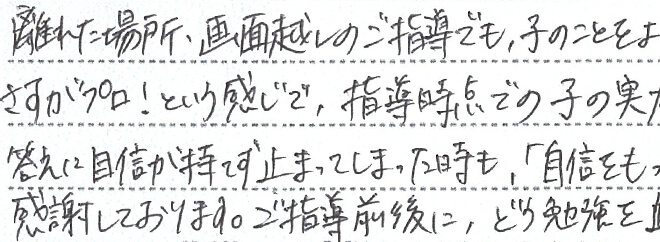 離れた場所、画面越しのご指導でも,子のことをよ
さすがプロ!という感じで,指導時点での子の実力
答えに自信が持てず止まってしまった時も,「自信をもっ
感謝しております。ご指導前後に,どう勉強を